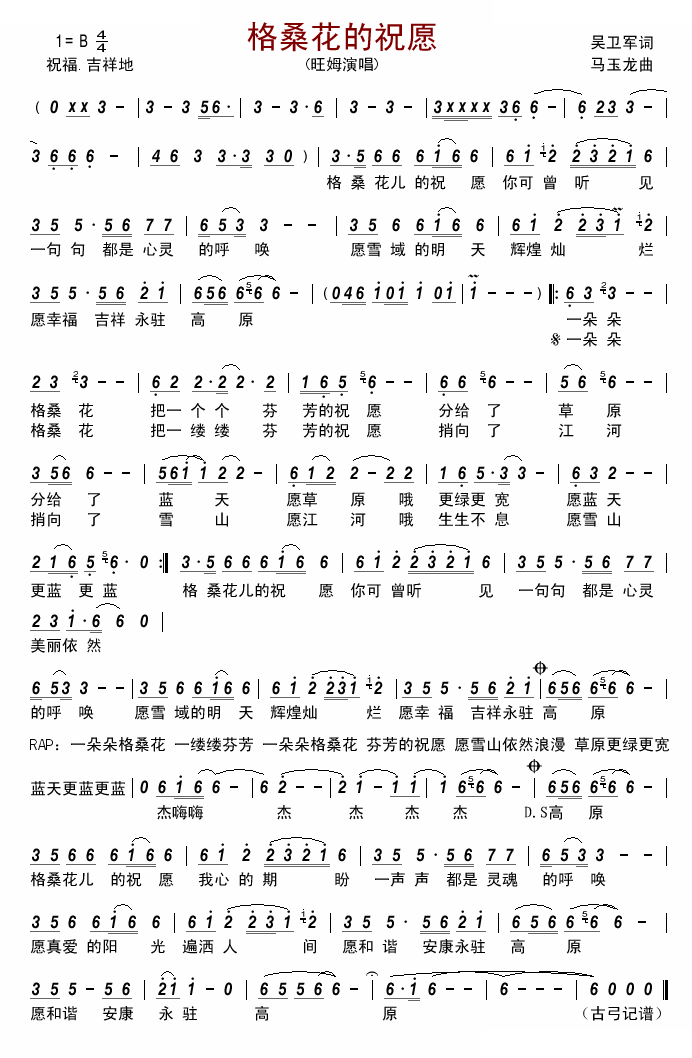 格桑花的祝愿
1= B 4/4
吴卫军词
祝福.吉祥地
(旺姆演唱)
马玉龙曲
( 0 x x 3 - | 3 - 3 5 6 · | 3 - 3 · 6 | 3 - - - | 3 x x x x 3 6 6 - | 6 2 3 3 -
3 6 6 6 - | 4 6 3 3 · 3 3 0 ) | 3 · 5 6 6 6 1 6 6 | 6 1 2 2 3 2 1 6
格 桑 花儿 的祝 愿 你可 曾 听 见
3 5 5 · 5 6 7 7 | 6 5 3 3 - - | 3 5 6 6 1 6 6 | 6 1 2 2 3 1 2
一句 句 都是 心灵 的呼 唤 愿雪 域 的明 天 辉煌 灿 烂
3 5 5 · 5 6 2 1 | 6 5 6 6 6 6 - | ( 0 4 6 1 0 1 1 0 1 | 1 - - - ) 6 3 3 - -
愿幸福 吉祥 永驻 高 原 一朵 朵
一朵 朵
2 3 3 - - | 6 2 2 · 2 2 · 2 | 1 6 5 6 - - | 6 6 6 - - | 5 6 6 - -
格桑 花 把一 个 个 芬 芳的祝 愿 分给 了 草 原
格桑 花 把一 缕 缕 芬 芳的祝 愿 捎向 了 江 河
3 5 6 6 - - | 5 6 1 1 2 2 - | 6 1 2 2 - 2 2 | 1 6 5 · 3 3 - | 6 3 2 - -
分给 了 蓝 天 愿草 原 哦 更绿更 宽 愿蓝 天
捎向 了 雪 山 愿江 河 哦 生生不 息 愿雪 山
2 1 6 5 6 · 0 :| 3 · 5 6 6 6 1 6 6 | 6 1 2 2 3 2 1 6 | 3 5 5 · 5 6 7 7
更蓝 更 蓝 格 桑花儿的祝 愿 你可 曾听 见 一句句 都是 心灵
2 3 1 · 6 6 0 |
美丽依 然
6 5 3 3 - - | 3 5 6 6 1 6 6 | 6 1 2 2 3 1 2 | 3 5 5 · 5 6 2 1 | 6 5 6 6 6 6 -
的呼 唤 愿雪 域的明 天 辉煌灿 烂 愿幸 福 吉祥永驻 高 原
RAP: 一朵朵格桑花 一缕缕芬芳 一朵朵格桑花 芬芳的祝愿 愿雪山依然浪漫 草原更绿更宽
蓝天更蓝更蓝 | 0 6 1 6 6 - | 6 2 - - | 2 1 - 1 1 | 1 6 6 6 - | 6 5 6 6 6 6 -
杰嗨嗨 杰 杰 杰 杰 D.S高 原
3 5 6 6 6 1 6 6 | 6 1 2 2 3 2 1 6 | 3 5 5 · 5 6 7 7 | 6 5 3 3 - -
格桑花儿 的祝 愿 我心 的 期 盼 一声 声 都是 灵魂 的呼 唤
3 5 6 6 6 1 6 6 | 6 1 2 2 3 1 2 | 3 5 5 · 5 6 2 1 | 6 5 6 6 6 6 -
愿真爱 的阳 光 遍洒 人 间 愿和 谐 安康永驻 高 原
3 5 5 - 5 6 | 2 1 1 - 0 | 6 5 5 6 6 - | 6 · 1 6 - - | 6 - - - | 6 0 0 0
愿和谐 安康 永 驻 高 原 (古弓记谱)